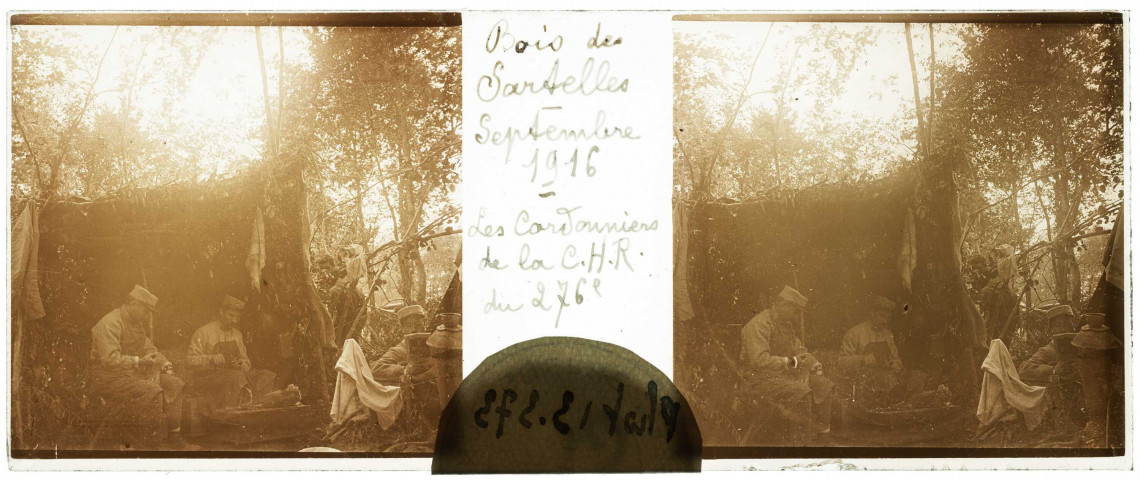 Bois des
Sartelles
Septembre
1916
Les Cordonniers
de la C.H.R.
du 276e
Phot 13.373